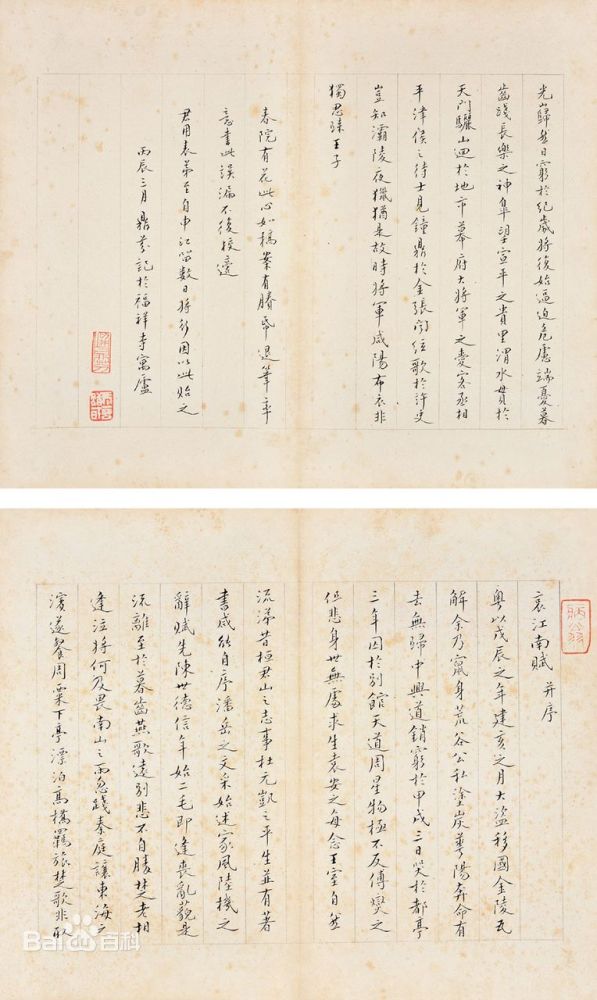 光巋然日窮於紀歲將復始逼迫危慮端憂暮
齒踐長樂之神皋望宣平之貴里渭水貫於
天門驪山迴於地市幕府大將軍之愛客丞相
平津侯之待士見鐘鼎於金張聞弦歌於許史
豈知灞陵夜獵猶是故時將軍咸陽布衣非
獨思歸王子
春院有花此心如槁案有賸帋退筆率
意書此誤漏不復校邊
君用表弟至自申江留數日將別因以此貽之
丙辰三月鼎芬記於福祥寺寓廬
哀江南賦 并序
粵以戊辰之年建亥之月大盜移國金陵瓦
解余乃竄身荒谷公私塗炭華陽奔命有
去無歸中興道銷窮於甲戌三日哭於都亭
三年囚於別館天道周星物極不反傅燮之
但悲身世無處求生袁安之每念王室自然
流涕昔桓君山之志事杜元凱之平生並有著
書咸能自序潘岳之文采始述家風陸機之
辭賦先陳世德信年始二毛即逢喪亂藐是
流離至於暮齒燕歌遠別悲不自勝楚老相
逢泣將何及畏南山之雨忽踐秦庭讓東海之
濱遂餐周粟下亭漂泊高橋羈旅楚歌非取
Baidu百科